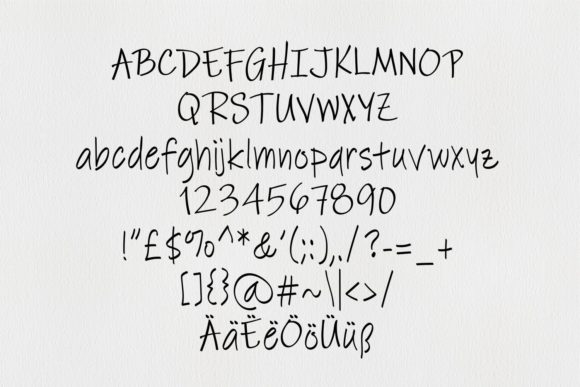 ABCDEFGHIJKLMNOP
QRSTUVWXYZ
abcdefghijklmnopqrstuvwxyz
1234567890
!"£$%^*&'(;:),./?-=_+
[]{}@#~\|<>/
ÄäËëÖöÜüß